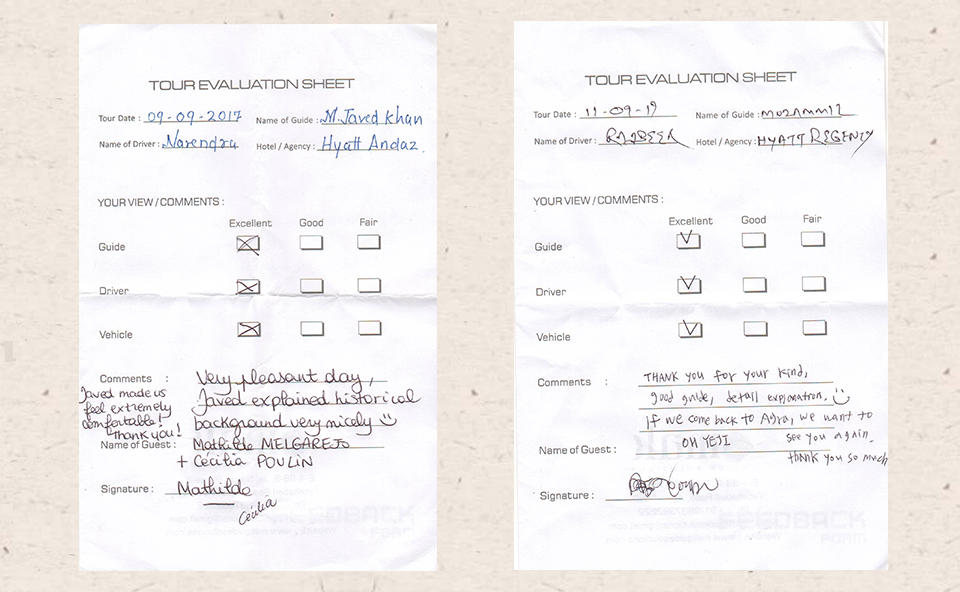 TOUR EVALUATION SHEET
Tour Date : 09-09-2017 Name of Guide : M. Javed Khan
Name of Driver : Narendra Hotel / Agency : Hyatt Andaz.
YOUR VIEW / COMMENTS :
Excellent Good Fair
Guide
Driver
Vehicle
Comments : Very pleasant day,
Javed explained historical
background very nicely
Javed made us
feel extremely
comfortable!
Thank you!
Name of Guest : Mathilde MELGAREJO
+ Cécilia POULIN
Signature : Mathilde
Cécilia
FEEDBACK
FORM
TOUR EVALUATION SHEET
Tour Date : 11-09-19 Name of Guide : MOZAMMIL
Name of Driver : Hotel / Agency : HYATT REGENCY
YOUR VIEW / COMMENTS :
Excellent Good Fair
Guide
Driver
Vehicle
Comments : THANK YOU for your kind,
good guide, detail explanation.
If we come back to Agra, we want to
see you again.
thank you so much
Name of Guest : OH YEJI
Signature :
FEEDBACK
FORM